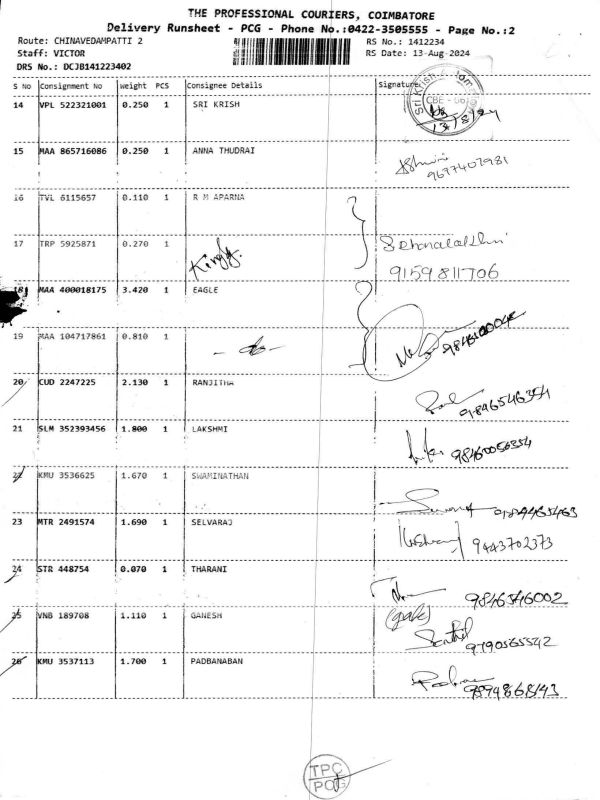 THE PROFESSIONAL COURIERS, COIMBATORE
Delivery Runsheet - PCG - Phone No.:0422-3505555 - Page No.:2
Route: CHINAVEDAMPATTI 2 RS No.: 1412234
Staff: VICTOR RS Date: 13-Aug-2024
DRS No.: DCJB141223402
S No Consignment No Weight PCS Consignee Details Signature
14 VPL 522321001 0.250 1 SRI KRISH
CBE - 06
13/8/24
15 MAA 865716086 0.250 1 ANNA THUDRAI
Ashwini
9677407981
16 TVL 6115657 0.110 1 R M APARNA
17 TRP 5925871 0.270 1
9159811706
18 MAA 400018175 3.420 1 EAGLE
19 MAA 104717861 0.810 1
20 CUD 2247225 2.130 1 RANJITHA
9896546354
21 SLM 352393456 1.800 1 LAKSHMI
98460056354
22 KMU 3536625 1.670 1 SWAMINATHAN
23 MTR 2491574 1.690 1 SELVARAJ
9443702373
24 STR 448754 0.070 1 THARANI
9846546002
25 VNB 189708 1.110 1 GANESH
(gate)
Senthil
9790565542
26 KMU 3537113 1.700 1 PADBANABAN
9894868143
TPC
PCG